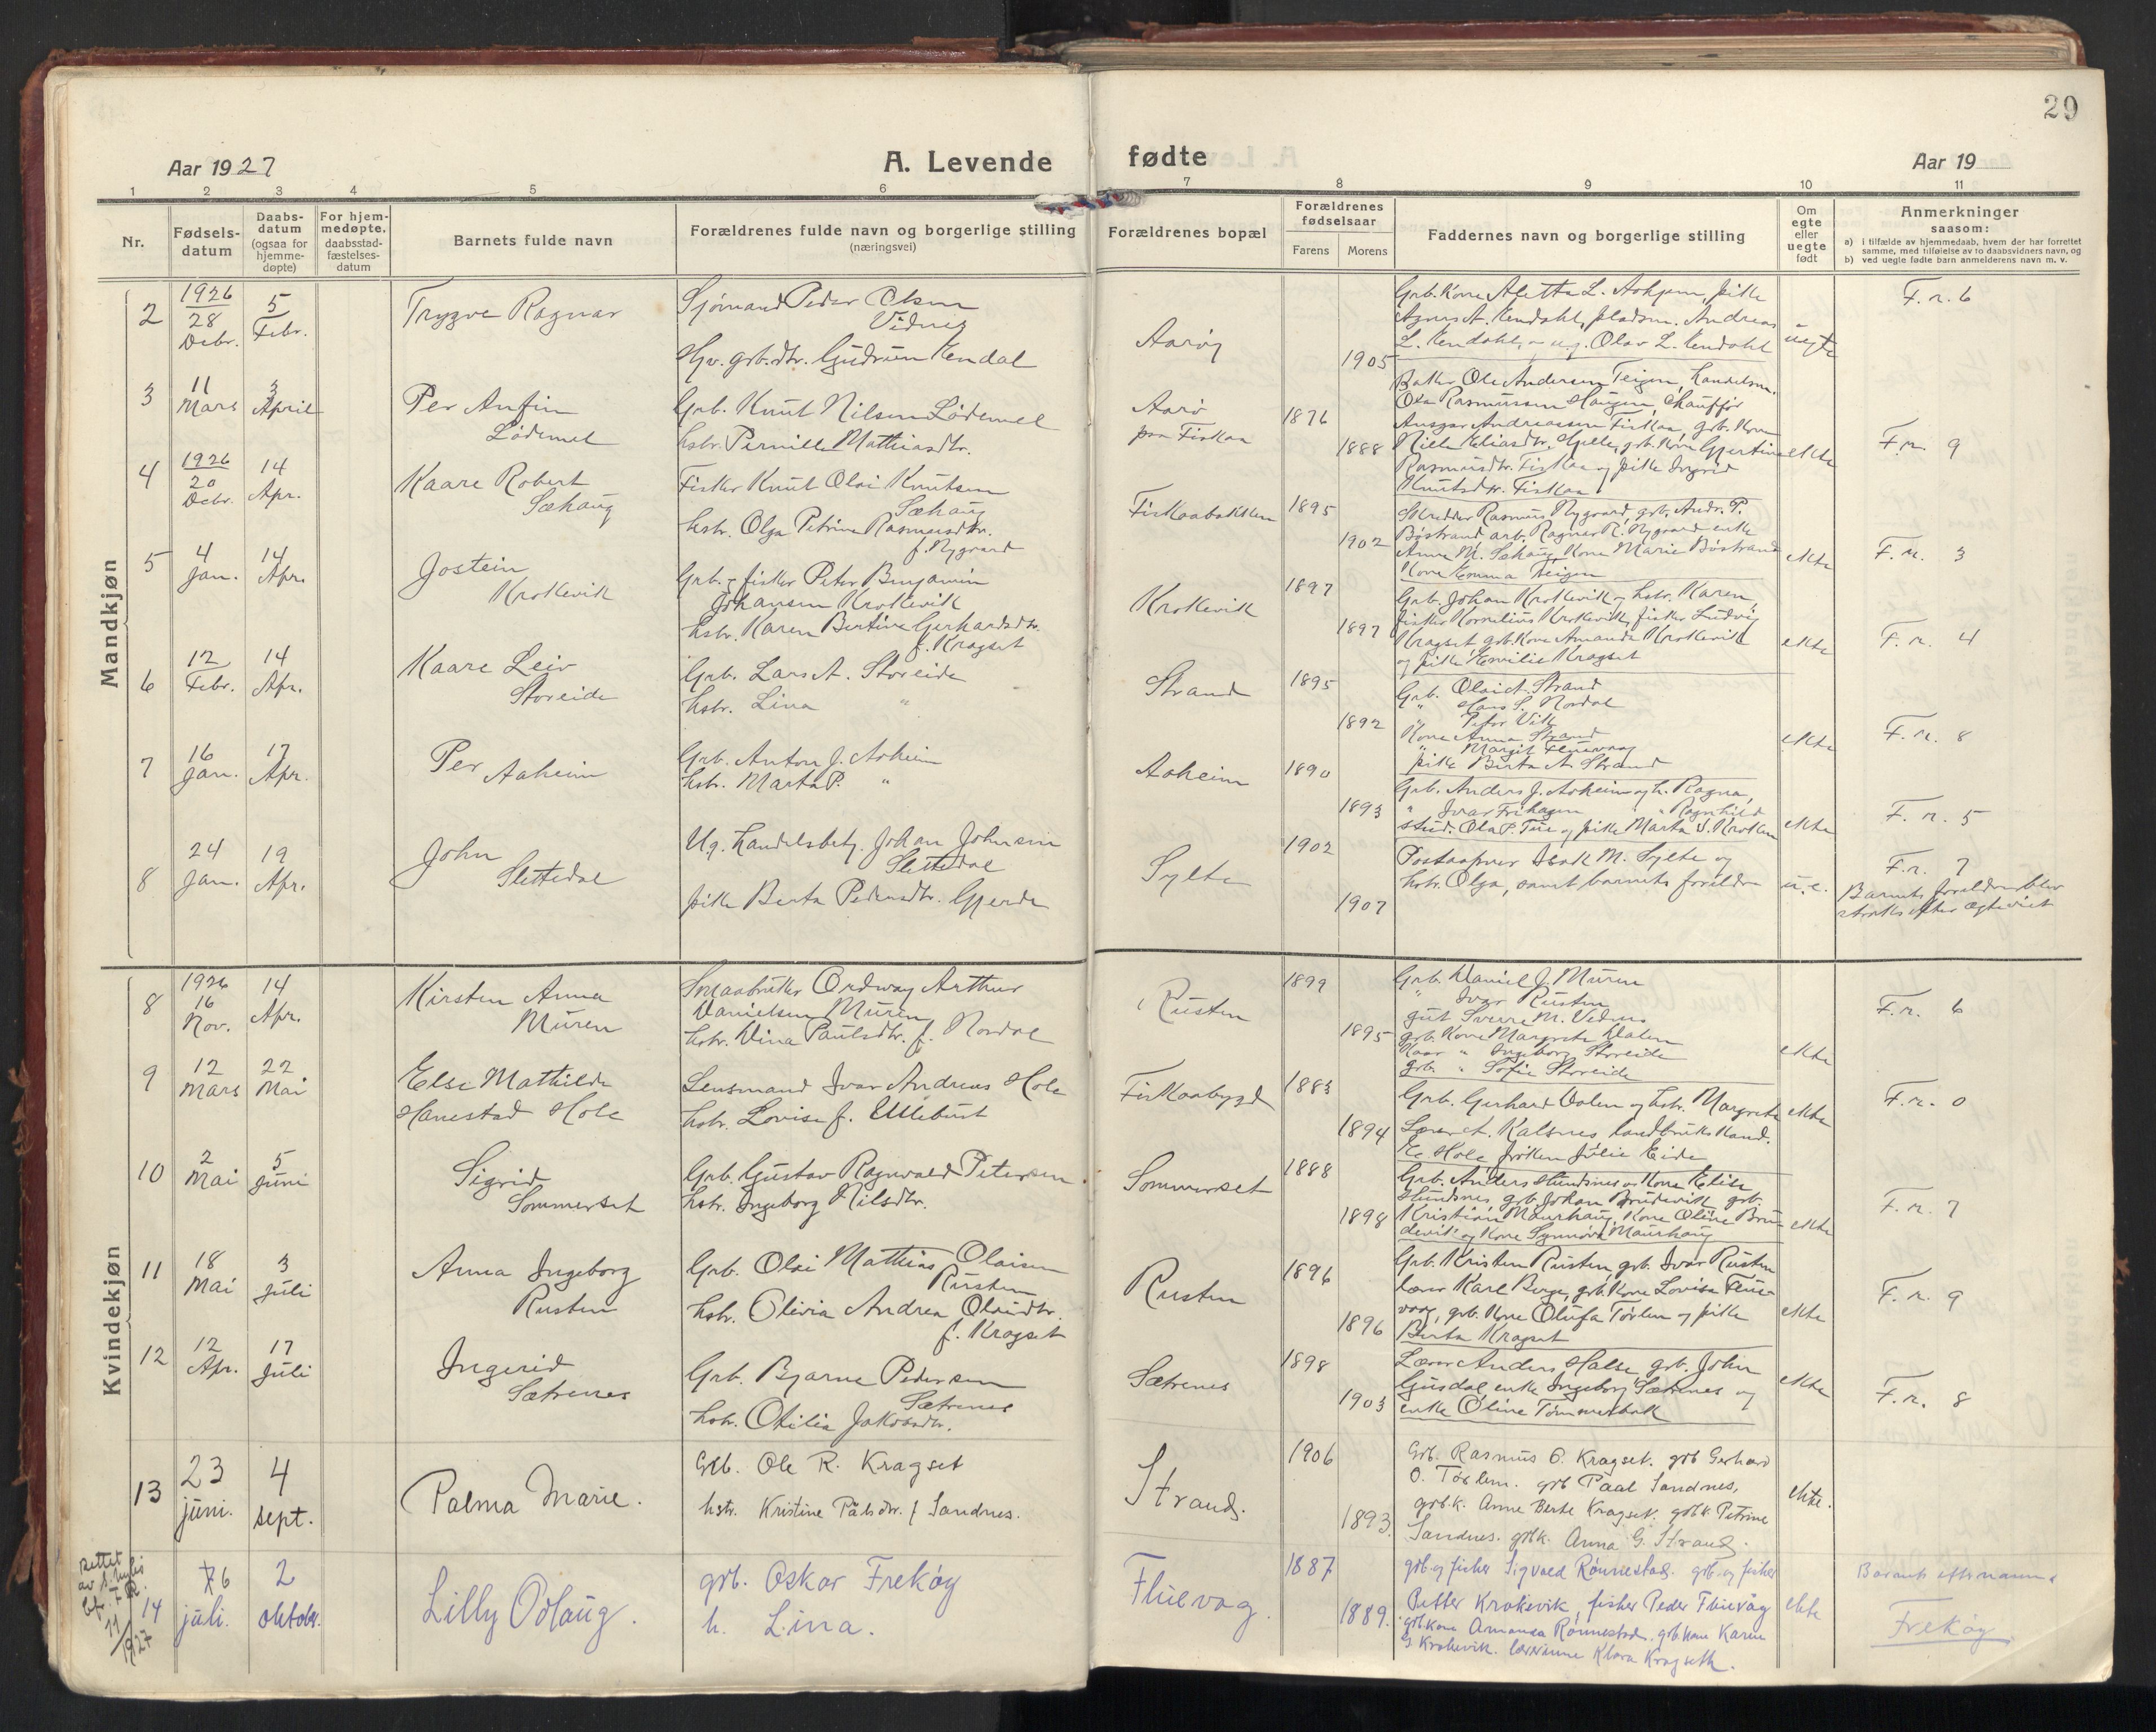 29
Aar 1927
A. Levende fødte
Aar 19
1 2 3 4 5 6 7 8 9 10 11
Nr.
Fødselsdatum
Daabsdatum (ogsaa for hjemmedøpte)
For hjemmedøpte, daabsstadfæstelsesdatum
Barnets fulde navn
Forældrenes fulde navn og borgerlige stilling (næringsvei)
Forældrenes bopæl
Forældrenes fødselsaar
Farens Morens
Faddernes navn og borgerlige stilling
Om egte eller uegte født
Anmerkninger saasom:
a) i tilfælde av hjemmedaab, hvem der har forrettet samme, med tilføielse av to daabsvidners navn, og
b) ved uegte fødte barn anmelderens navn m. v.
Mandkjøn
2
1926
28 Debr.
5 Febr.
Trygve Ragnar
Sjømand Peder Olsen
Hjv. grb.dtr. Gudrun Hendal
Aarøy
1905
Grb. Kone Aletta L. Aahjem, pike
Agnes A. Hendahl, pladsm. Andreas
L. Hendahl, u.g. Olav L. Hendahl
uegte
F. n. 6
3
11 Mars
3 April
Per Anfin
Lødemel
Grb. Knut Nilsen Lødemel
hstr. Pernille Mathiasdtr.
Aarø
paa Fiskaa
1876
1888
Baker Ole Andersen Teigen, handelsm.
Ola Rasmussen Haugen, chauffør
Ansgar Andreassen Fiskaa, grb. Kone
Rasmusdtr. Fiskaa og pike Ingrid
Knutsdtr. Fiskaa
ekte
F. n. 9
4
1926
20 Debr.
14 Apr.
Kaare Robert
Sæhaug
Fisker Knut Olai Knutsen
Sæhaug
hstr. Olga Petrine Rasmusdtr.
f. Nygaard
Fiskaabakken
1895
1902
Skredder Rasmus Nygaard, grb. Andr. P.
Bøstrand arb. Ragnar R. Nygaard enke
Anne M. Sæhaug, Kone Marie Bøstrand
Kone Emma Teigen
ekte
F. n. 3
5
4 Jan.
14 Apr.
Jostein
Krokevik
Grb. & fisker Peter Benjamin
Johansen Krokevik
hstr. Karen Bertine Gerhardsdtr.
f. Kragset
Krokevik
1897
1897
Grb. Johan Krokevik og hstr. Karen,
fisker Kornelius Krokevik, fisker Ludvig
Kragset, grb. Kone Amanda Krokevik
og pike Emilie Kragset
ekte
F. n. 4
6
12 Febr.
14 Apr.
Kaare Leiv
Storeide
Grb. Lars A. Storeide
hstr. Lina "
Strand
1895
1892
Grb. Olai A. Strand
" Hans S. Nordal
" Peter Vik
Kone Anna Strand
" Margit Fluevaag
pike Berta A. Strand
ekte
F. n. 8
7
16 Jan.
17 Apr.
Per Aaheim
Grb. Anton J. Aaheim
hstr. Marta P. "
Aaheim
1890
1893
Grb. Anders J. Aaheim og h. Ragna,
" Ivar Frihagen " " Ragnhild
stud. Ola P. Tue og pike Marta J. Kroken
ekte
F. n. 5
8
24 Jan.
19 Apr.
John
Slettedal
U.g. handelsbetj. Johan Johnsen
Slettedal
pike Berta Pedersdtr. Gjerde
Sylte
1902
1907
Postaapner Isak M. Sylte og
hstr. Olga, samt barnets foreldre
u.e.
F. n. 7
Barnets foreldre blev
straks efter egteviet
Kvindekjøn
8
1926
16 Nov.
14 Apr.
Kirsten Anna
Muren
Smaabruker Ordway Arthur
Danielsen Muren
hstr. Dina Paulsdtr. f. Nordal
Rusten
1899
1895
Grb. Daniel J. Muren
" Ivar Rusten
gut Sverre M. Vednes
grb. Kone Margrete Dalen
Kaar " Ingeborg Storeide
grb. " Sofie Storeide
ekte
F. n. 6
9
12 Mars
22 Mai
Else Mathilde
Hanestad Hole
Lensmand Ivar Andreas Hole
hstr. Lovise f. Ullebust
Fiskaabygd
1883
1894
Grb. Gerhard Dalen og hstr. Margrete
Lærer A. Kalsnes, landbrukskand.
E. Hole, frøken Julie Eide
ekte
F. n. 0
10
2 Mai
5 Juni
Sigrid
Sommerset
Grb. Gustav Ragnvald Petersen
hstr. Ingeborg Nilsdtr.
Sommerset
1888
1898
Grb. Anders Stundsnes og Kone Elise
Stundsnes, grb. Johan Brudevik, grb.
Kristian Maurhaug, Kone Oline Bru-
devik og Kone Synnøve Maurhaug
ekte
F. n. 7
11
18 Mai
3 Juli
Anna Ingeborg
Rusten
Grb. Olai Mathias Olaisen
Rusten
hstr. Olivia Andrea Olaidtr.
f. Kragset
Rusten
1896
1896
Grb. Kristen Rusten, grb. Ivar Rusten
lærer Karl Berge, grb. Kone Lovise Flue-
vaag, grb. Kone Olufa Tørlen og pike
Berta Kragset
ekte
F. n. 9
12
12 Apr.
17 Juli
Ingerid
Sætrenes
Grb. Bjarne Pedersen
Sætrenes
hstr. Otilie Jakobsdtr.
Sætrenes
1898
1903
Lærer Anders Halse, grb. John
Gusdal, enke Ingeborg Sætrenes og
enke Oline Tømmerbak
ekte
F. n. 8
13
23 juni.
4 sept.
Palma Marie.
Grb. Ole R. Kragset
hstr. Kristine Pålsdtr. f Sandnes.
Strand.
1906
1893.
Grb. Rasmus O. Kragset. grb Gerhard
O. Tørlen. grb Paal Sandnes,
grb.k. Anne Berte Kragset. grb.k. Petrine
Sandnes. grbk. Anna G. Strand.
ekte.
rettet
av s. mdir
14
6 juli.
2 oktober.
Lilly Odlaug.
grb. Oskar Frekøy
h. Lina.
Fluevag.
1887
1889.
grb. og fisker Sigvald Rønnestad. grb. og fisker
Petter Krokevik, fisker Peder Fluevåg
grb kone Amanda Rønnestad. grb. kone Karen
G. Krokevik. lærerinne Klara Kragseth.
ekte
Barnets efternavn
Frekøy.